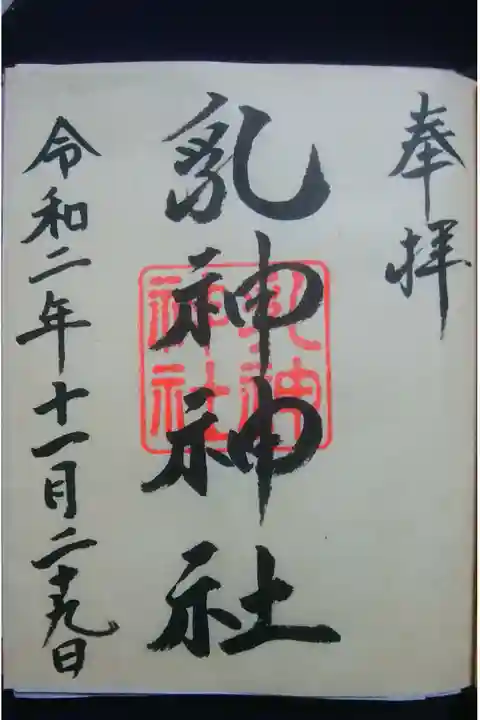 奉拝
乳神神社
乳神
神社
令和二年十一月二十九日